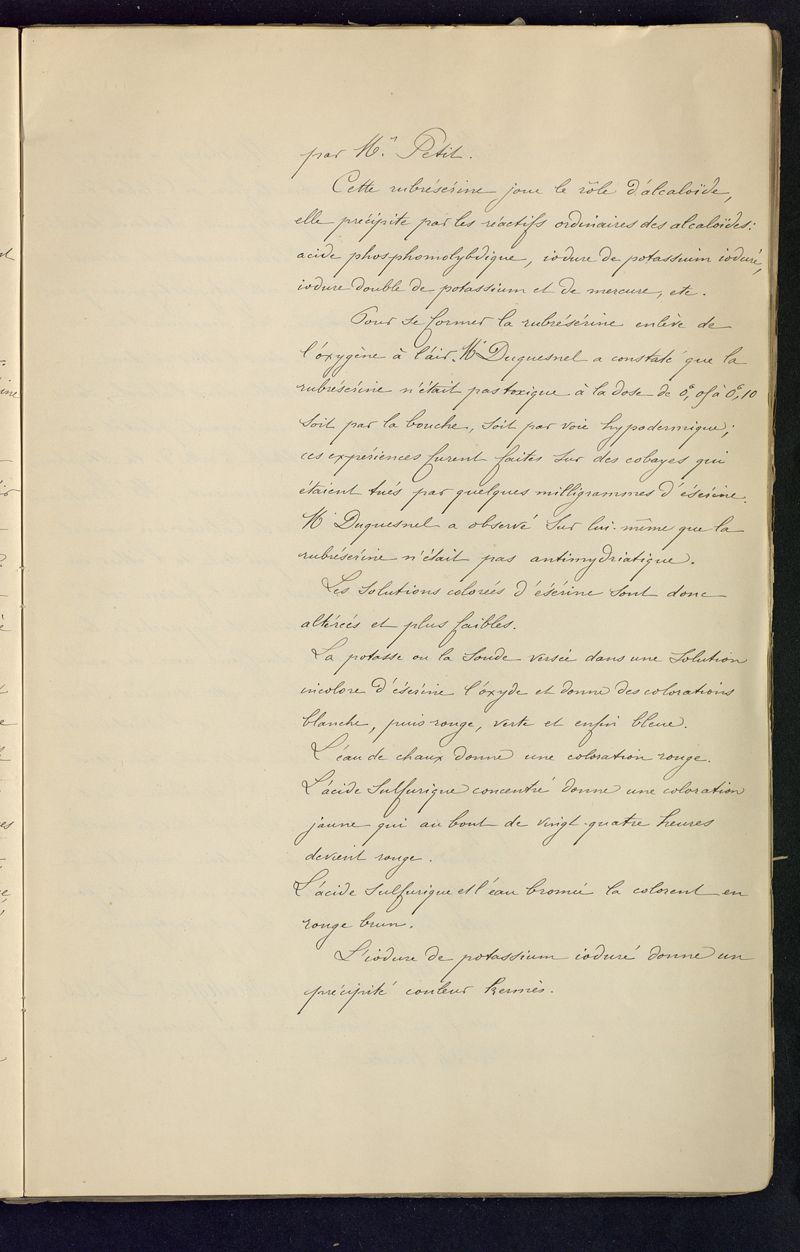 par Mr Petit.
Cette rubrésérine joue le rôle d'alcaloïde,
elle précipite par les réactifs ordinaires des alcaloïdes:
acide phosphomolybdique, iodure de potassium ioduré,
iodure double de potassium et de mercure, etc.
Pour se former la rubrésérine enlève de
l'oxygène à l'air. Mr Duquesnel a constaté que la
rubrésérine n'était pas toxique à la dose de 0g,05 à 0g,10
soit par la bouche, soit par voie hypodermique;
ces expériences furent faites sur des cobayes qui
étaient tués par quelques milligrammes d'ésérine.
Mr Duquesnel a observé sur lui-même que la
rubrésérine n'était pas antimydriatique.
Les solutions colorées d'ésérine sont donc
altérées et plus faibles.
La potasse ou la soude versée dans une solution
incolore d'ésérine l'oxyde et donne des colorations
blanche, puis rouge, verte et enfin bleue.
L'eau de chaux donne une coloration rouge.
L'acide sulfurique concentré donne une coloration
jaune qui au bout de vingt-quatre heures
devient rouge.
L'acide sulfurique et l'eau bromée la colorent en
rouge brun.
L'iodure de potassium ioduré donne un
précipité couleur Kermès.